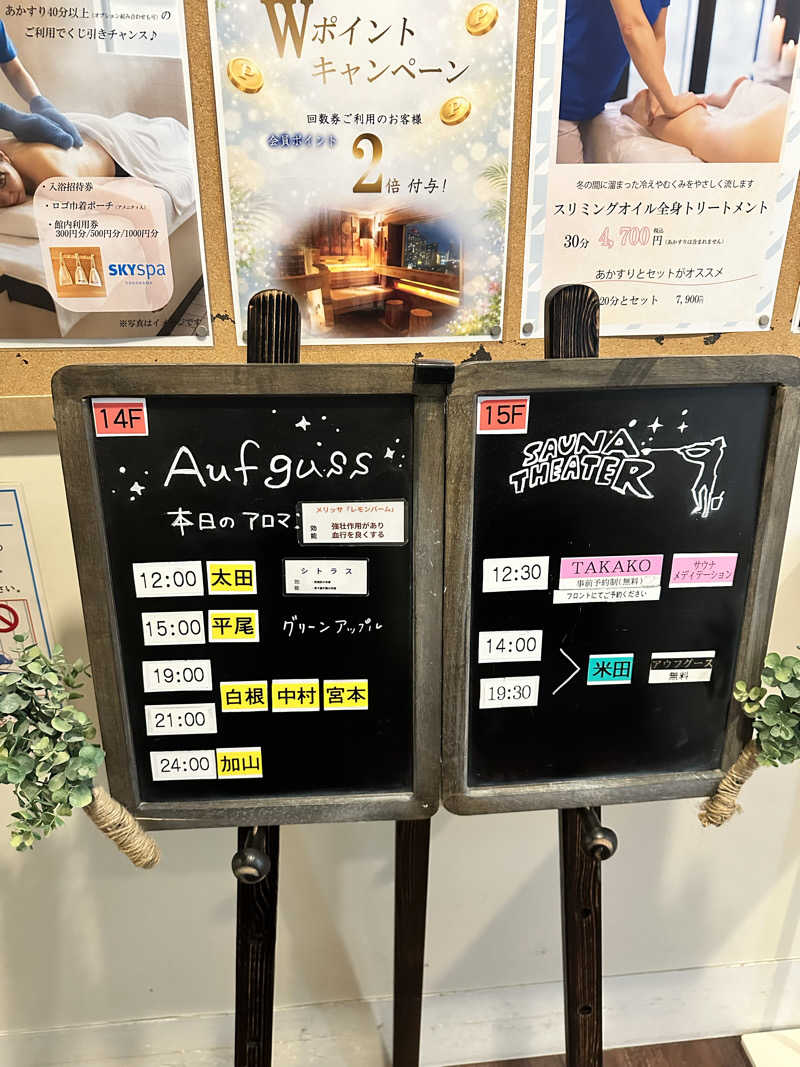 あかすり40分以上(オプション組み合わせも可)の
ご利用でくじ引きチャンス♪
・入浴招待券
・ロゴ巾着ポーチ(アメニティ入)
・館内利用券
300円分/500円分/1000円分
SKYspa
YOKOHAMA
※写真はイメージです
Wポイント
キャンペーン
回数券ご利用のお客様
会員ポイント
2倍 付与!
冬の間に溜まった冷えやむくみをやさしく流します
スリミングオイル全身トリートメント
30分 4,700円 税込 (あかすりは含まれません)
あかすりとセットがオススメ
20分とセット 7,900円
14F
Aufguss
本日のアロマ:
メリッサ「レモンバーム」
効能
強壮作用があり
血行を良くする
シトラス
グリーンアップル
12:00 太田
15:00 平尾
19:00
21:00
白根 中村 宮本
24:00 加山
15F
SAUNA
THEATER
12:30
TAKAKO
事前予約制(無料)
フロントにてご予約ください
サウナ
メディテーション
14:00
19:30
米田
アウフグース
無料
さい。